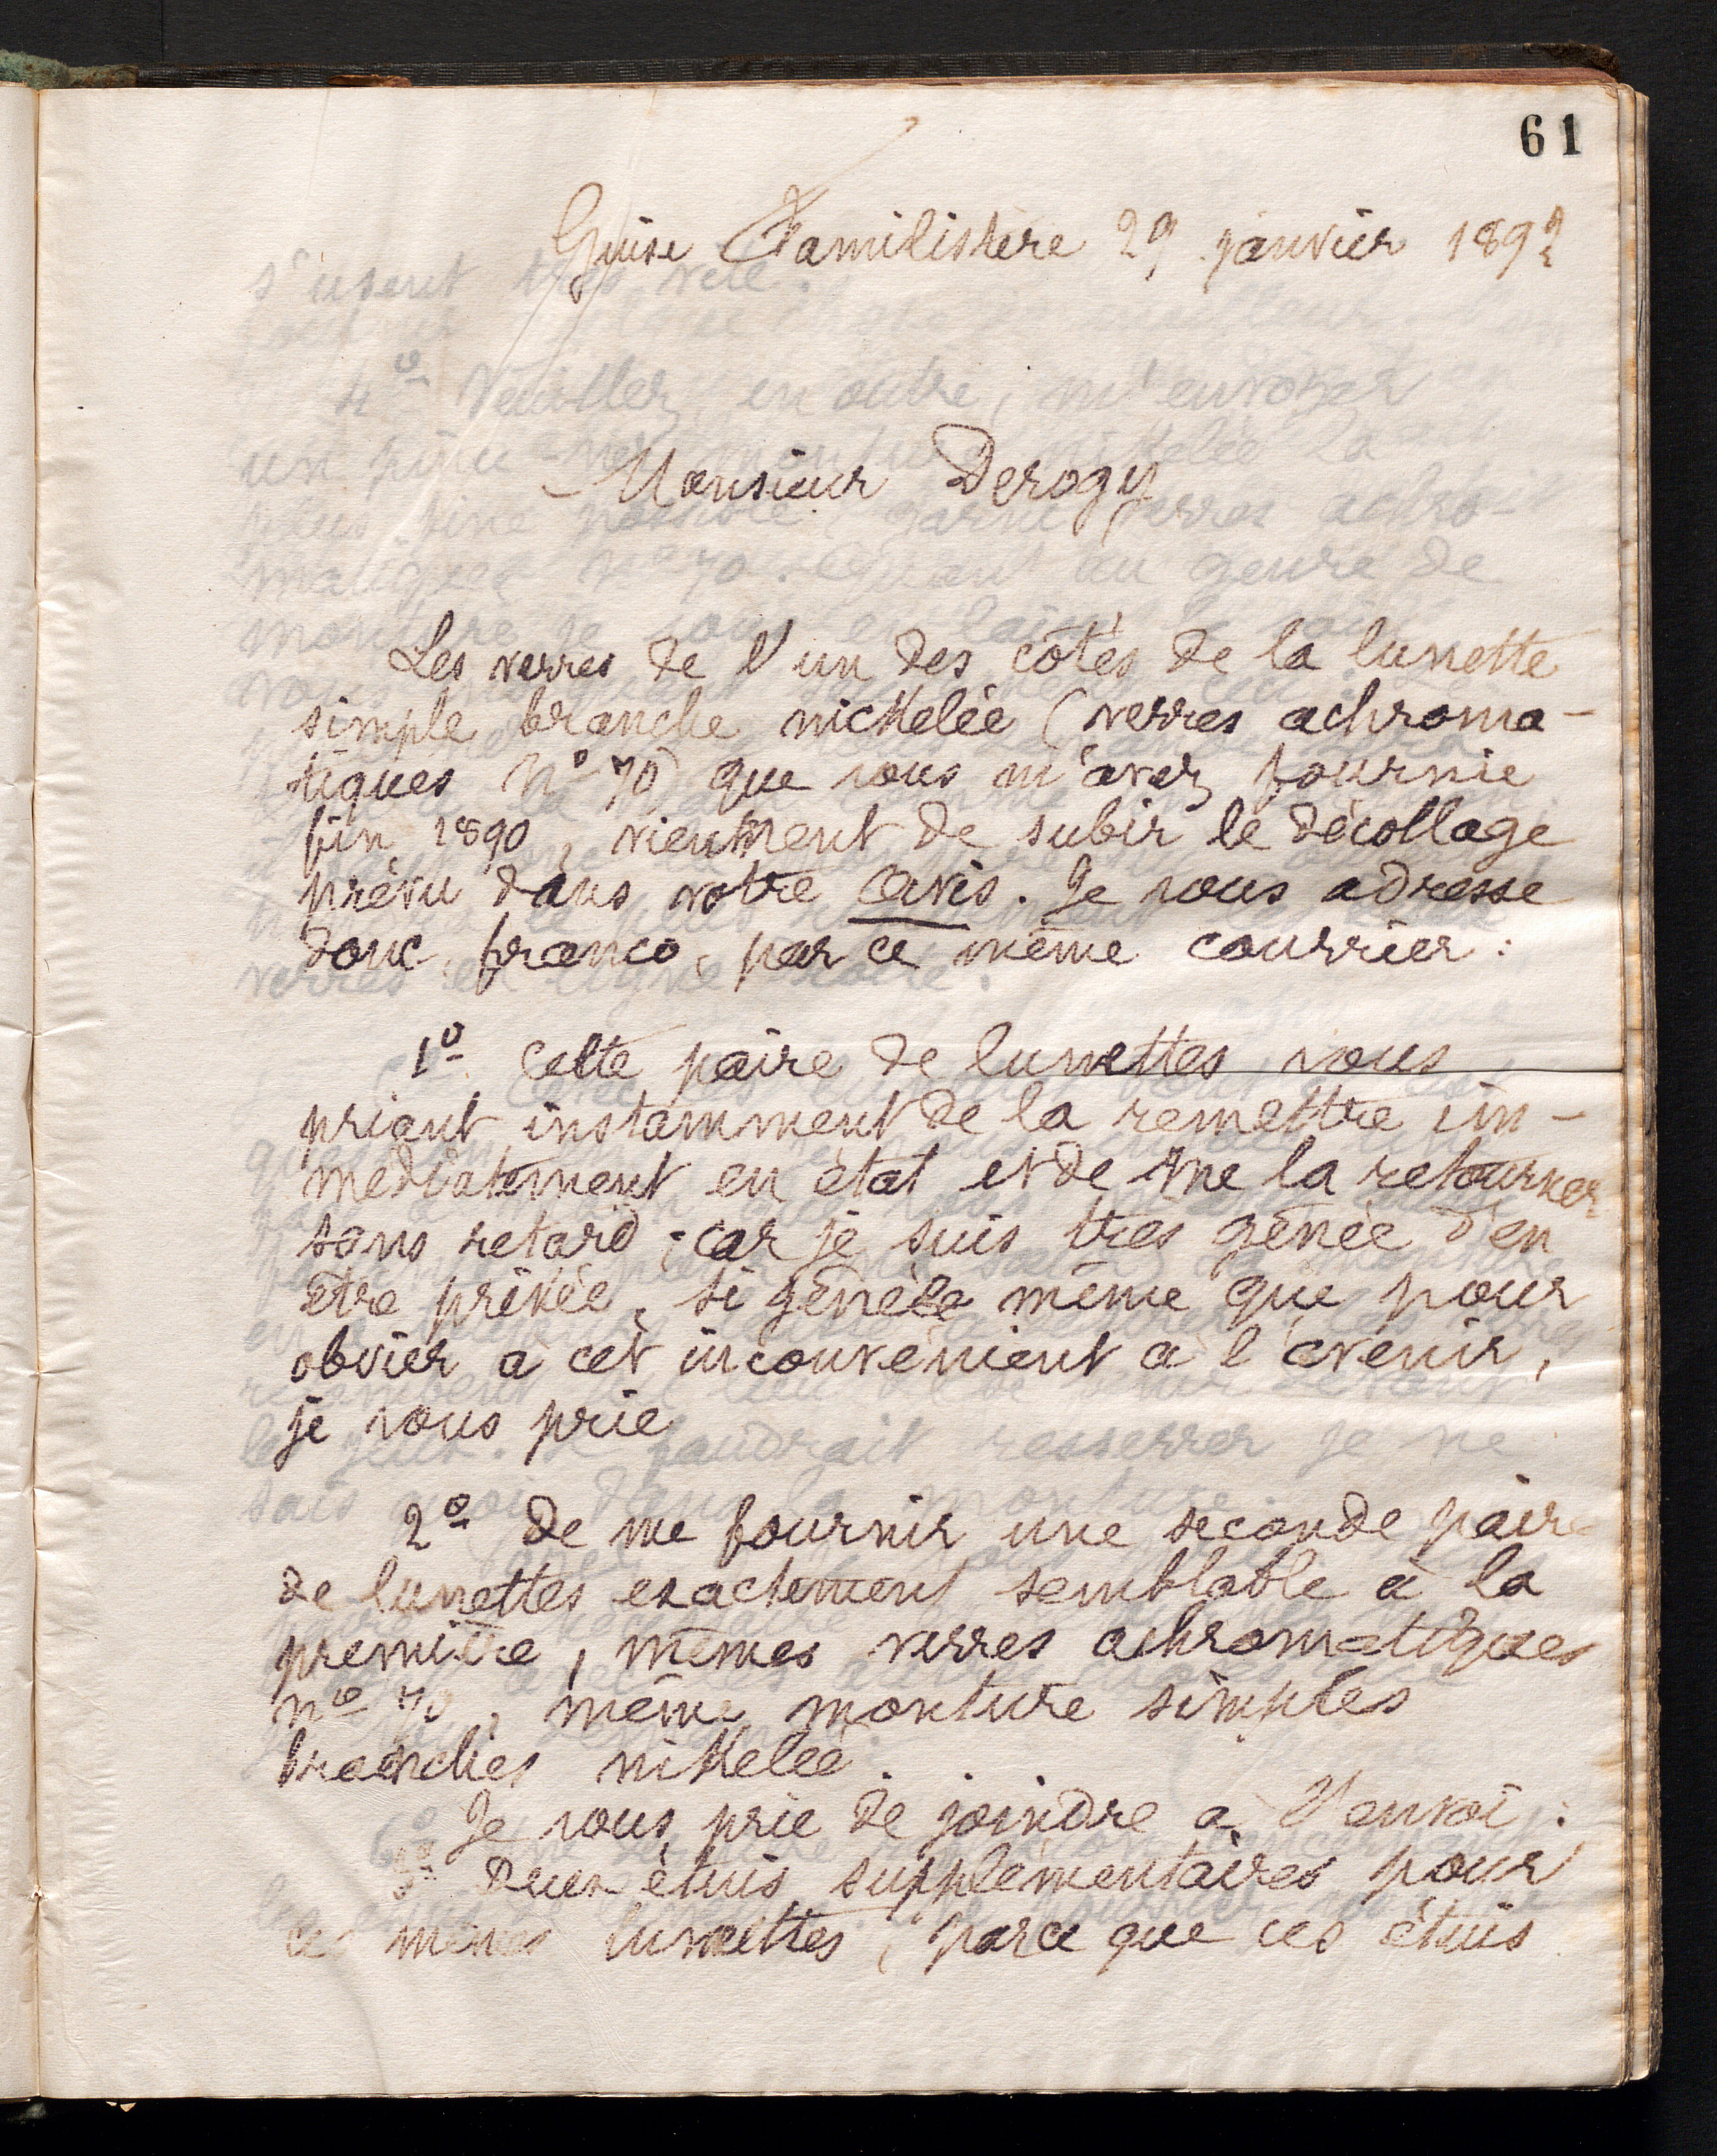 61
Guise Familistère 29 janvier 1892
Monsieur Derogy
Les verres de l'un des côtés de la lunette
simple branche nickelée (verres achroma-
tiques N° 70) que vous m'avez fournie
fin 1890, viennent de subir le décollage
prévu dans votre Avis. Je vous adresse
donc, franco, par ce même courrier :
1° Cette paire de lunettes vous
priant instamment de la remettre im-
médiatement en état et de me la retourner
sans retard ; car je suis très gênée d'en
être privée, si gênée même que pour
obvier à cet inconvénient à l'avenir,
je vous prie
2° de me fournir une seconde paire
de lunettes exactement semblable à la
première, mêmes verres achromatiques
n° 70, même monture simples
branches nikelée.
Je vous prie de joindre à l'envoi :
3° Deux étuis supplémentaires pour
ces mêmes lunettes, parce que ces étuis